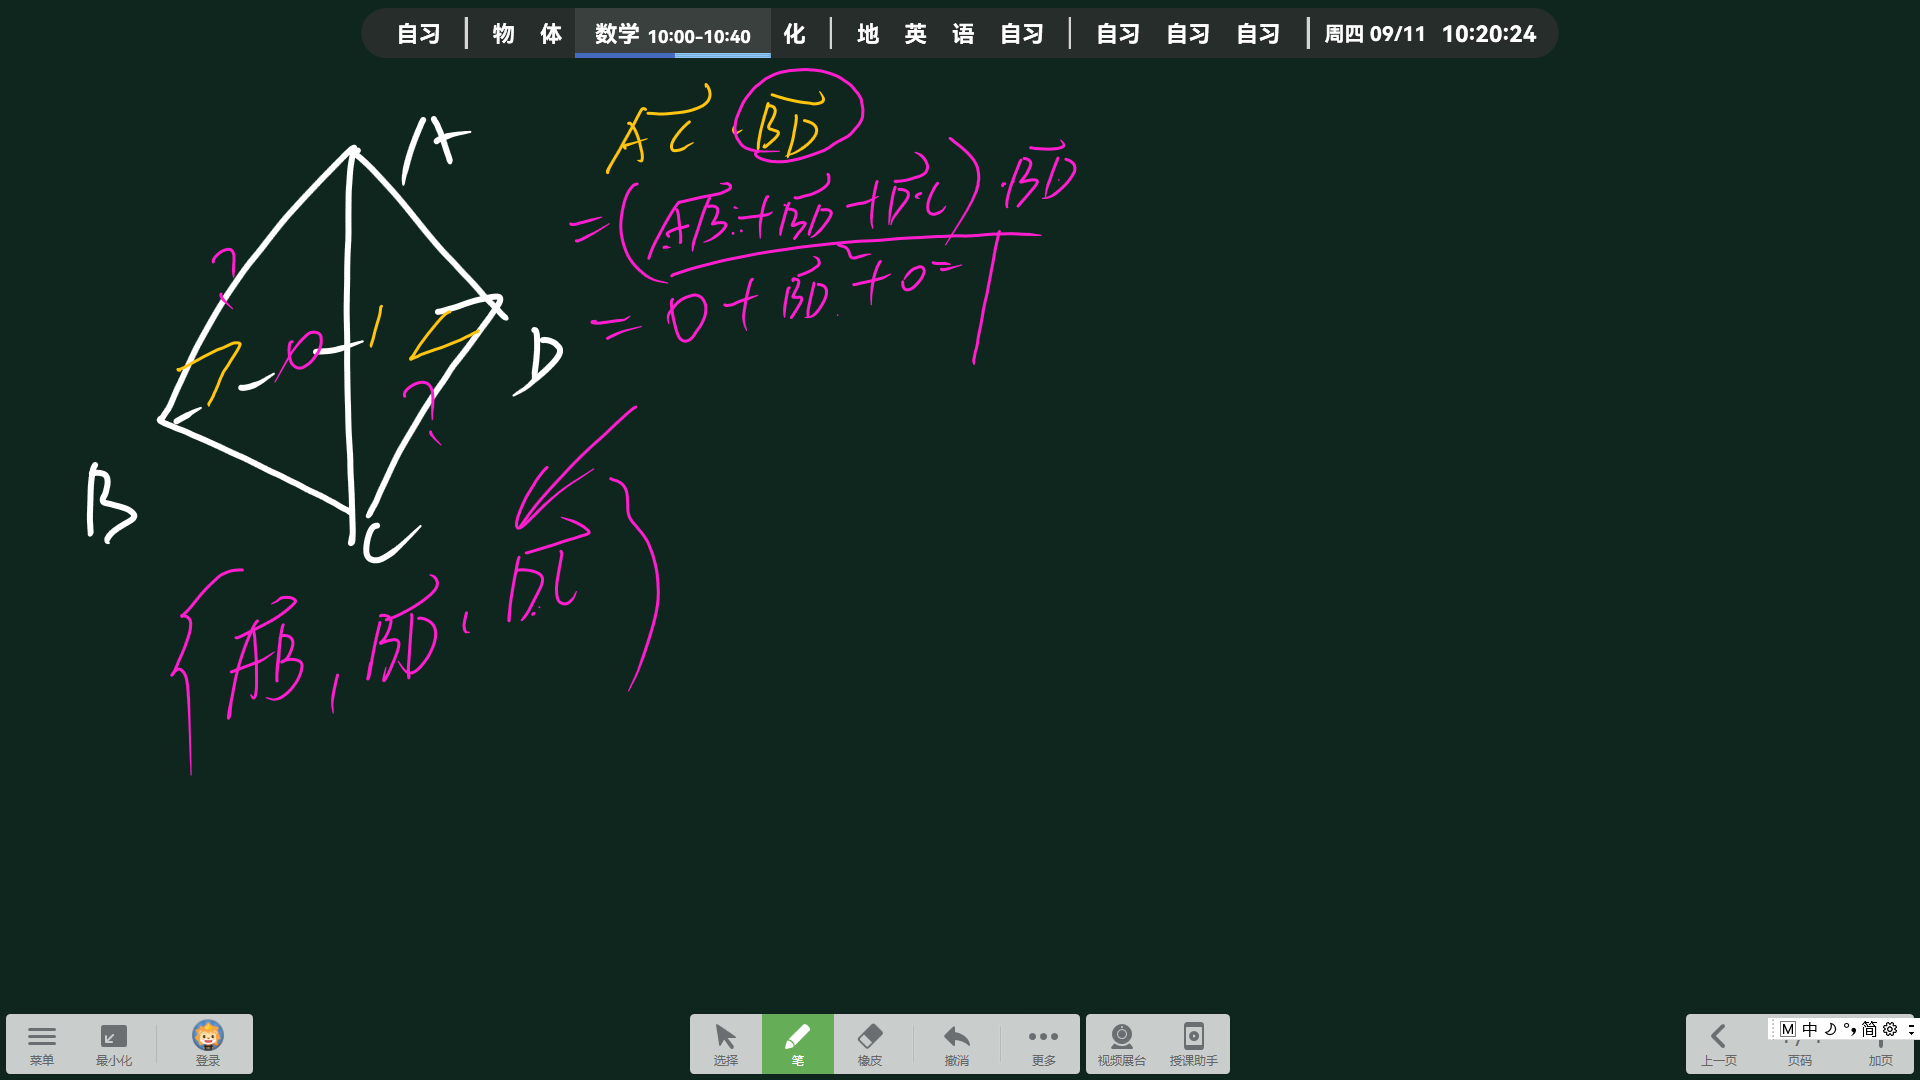 自习 | 物 体 数学 10:00-10:40 化 | 地 英 语 自习 | 自习 自习 自习 | 周四 09/11 10:20:24
AC · BD
A
= (AB + BD + DC) · BD
= 0 + BD² + 0 =
?
1
0
D
?
B
C
DC
AB , BD ,
菜单 最小化 登录 选择 笔 橡皮 撤消 更多 视频展台 授课助手 上一页 页码 加页
M 中 简